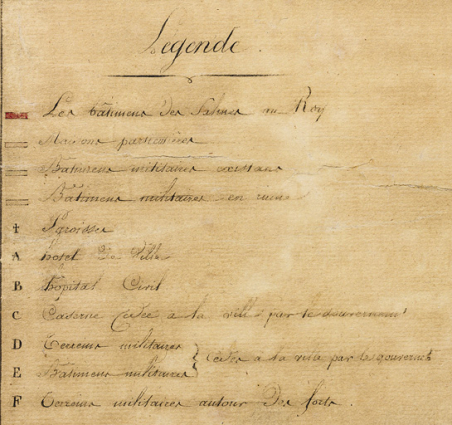 Legende.
Les bâtimens des Salines au Roy
Maisons particulieres
Batimens militaires existans
Bâtimens militaires en ruines
† Paroisse
A hotel De Ville
B hopital Civil
C Caserne Cédée à la ville par le Gouvernemt
D Terreins militaires
E Bâtimens militaires } Cédés à la ville par le gouvernmt
F Terreins militaires autour Des forts.